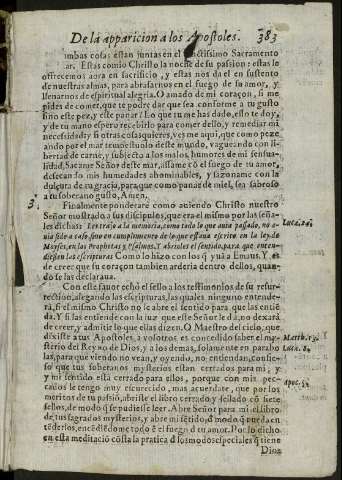 De la apparicion a los Apostoles. 383
ambas cosas estan juntas en el sanctissimo Sacramento
ar. Estas comio Christo la noche de su passion: estas le
offrecemos aora en sacrificio, y estas nos da el en sustento
de nuestras almas, para abrasarnos en el fuego de su amor, y
llenarnos de espiritual alegria. O amado de mi coraçon, si me
pides de comer, que te podre dar que sea conforme a tu gusto
sino este pez, y este panar? Lo que tu me has dado, esso te doy,
y de tu mano espero recebirlo para comer dello, y remediar mi
necessidad: y si otras cosas quieres, ves me aqui, que como peze
ando por el mar tempestuoso deste mundo, vagueando con li-
bertad de carne, y subjecto a los malos humores de mi sensua-
lidad, Sacame Señor deste mar, assame cō el fuego de tu amor,
desecando mis humedades abominables, y sazoname con la
dulçura de tu gracia, para que como panar de miel, sea sabroso
a tu soberano gusto, Amen.
3. Finalmente ponderarè como auiendo Christo nuestro
Señor mostrado a sus discipulos, que era el mismo por las seña-
les dichas: Les traxo a la memoria, como todo lo que auia passado, no a- Luca. 24.
uia sido a caso sino en cumplimento de lo que estaua escrito en la ley de
Moyses, en los Prophetas y Psalmos, Y abrioles el sentido, para que enten-
diessen las escripturas Como lo hizo con los q̄ yuā a Emaus. Y es
de creer que su coraçon tambien arderia dentro dellos, quan-
do se las declaraua.
Con este fauor echò el sello a los testimonios de su resur-
rection, alegando las escripturas, las quales ninguno entende-
rà, si el mismo Christo no le abre el sentido para que las entiē-
da. Y si las entiende con la luz que este Señor le dà, no dexarà
de creer, y admitir lo que ellas dizen. O Maestro del cielo, que
dixiste a tus Apostoles, a vosotros es concedido saber el my- Matth. 13.
sterio del Reyno de Dios, y a los demas, solamente en parabo Luca. 8.
las, para que viendo no vean, y oyendo, no entiendan, confies-
so que tus soberanos mysterios estan cerrados para mi; y
y mi sentido està cerrado para ellos, porque con mis pec-
cados le tengo muy escurecido, mas acuerdate, que por los Apoc. 5.
meritos de tu passiō, abriste el libro cerrado y sellado cō siete
sellos, de modo q̄ se pudiesse leer. Abre Señor para mi el libro
de tus sagrados mysterios, y abre mi sētido, d̄ modo q̄ pueda en-
tēderlos, encēdiēdome todo ē el fuego d̄ tu amor. Por lo dicho
en esta meditaciō cōsta la pratica d̄ los modos especiales q̄ tiene
Dios